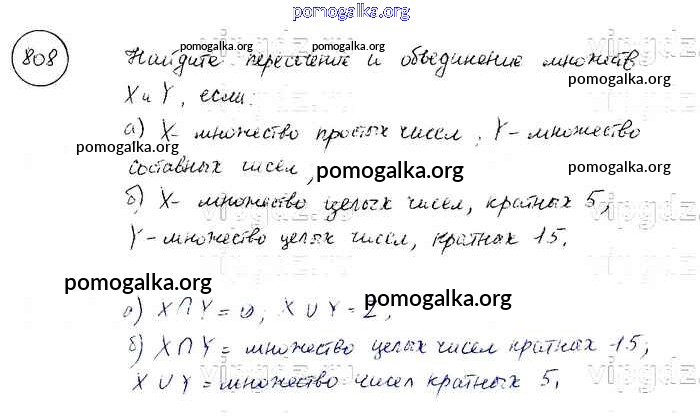 pomogalka.org
808
Найдите пересечение и объединение множеств
X и Y, если:
а) X - множество простых чисел, Y - множество
составных чисел,
б) X - множество целых чисел, кратных 5,
Y - множество целых чисел, кратных 15.
а) X ∩ Y = ∅, X ∪ Y = Z,
б) X ∩ Y = множество целых чисел кратных 15;
X ∪ Y = множество чисел кратных 5.
pomogalka.org
pomogalka.org
pomogalka.org
pomogalka.org
pomogalka.org
pomogalka.org
pomogalka.org
pomogalka.org
pomogalka.org
pomogalka.org